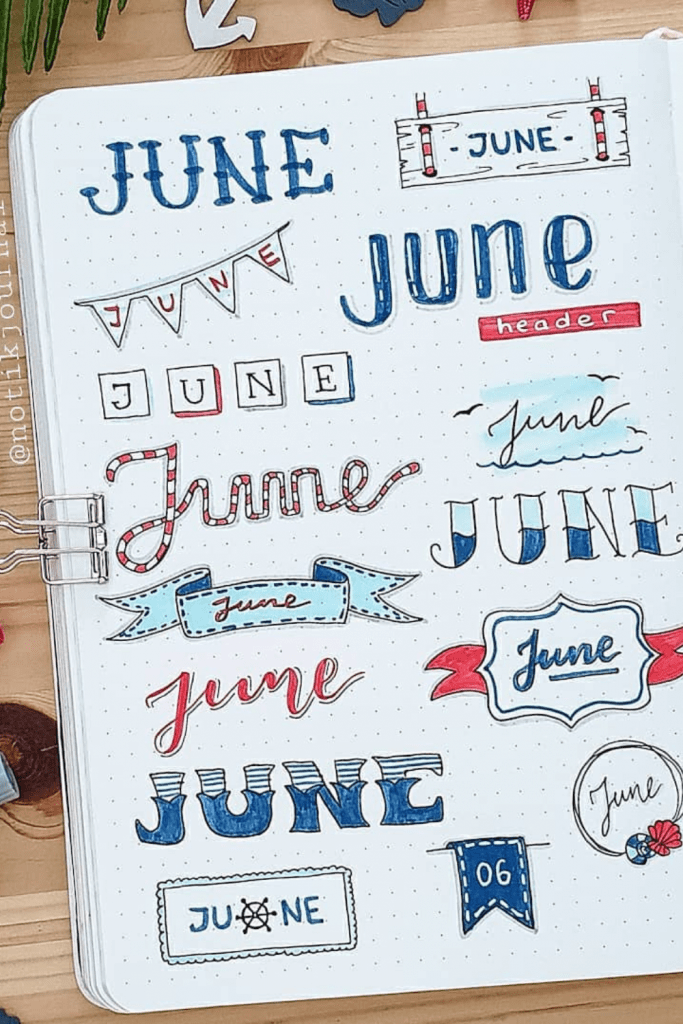 JUNE
- JUNE -
JUNE
June
header
JUNE
June
June
JUNE
June
June
June
JUNE
June
JUNE
06
@notikjournal